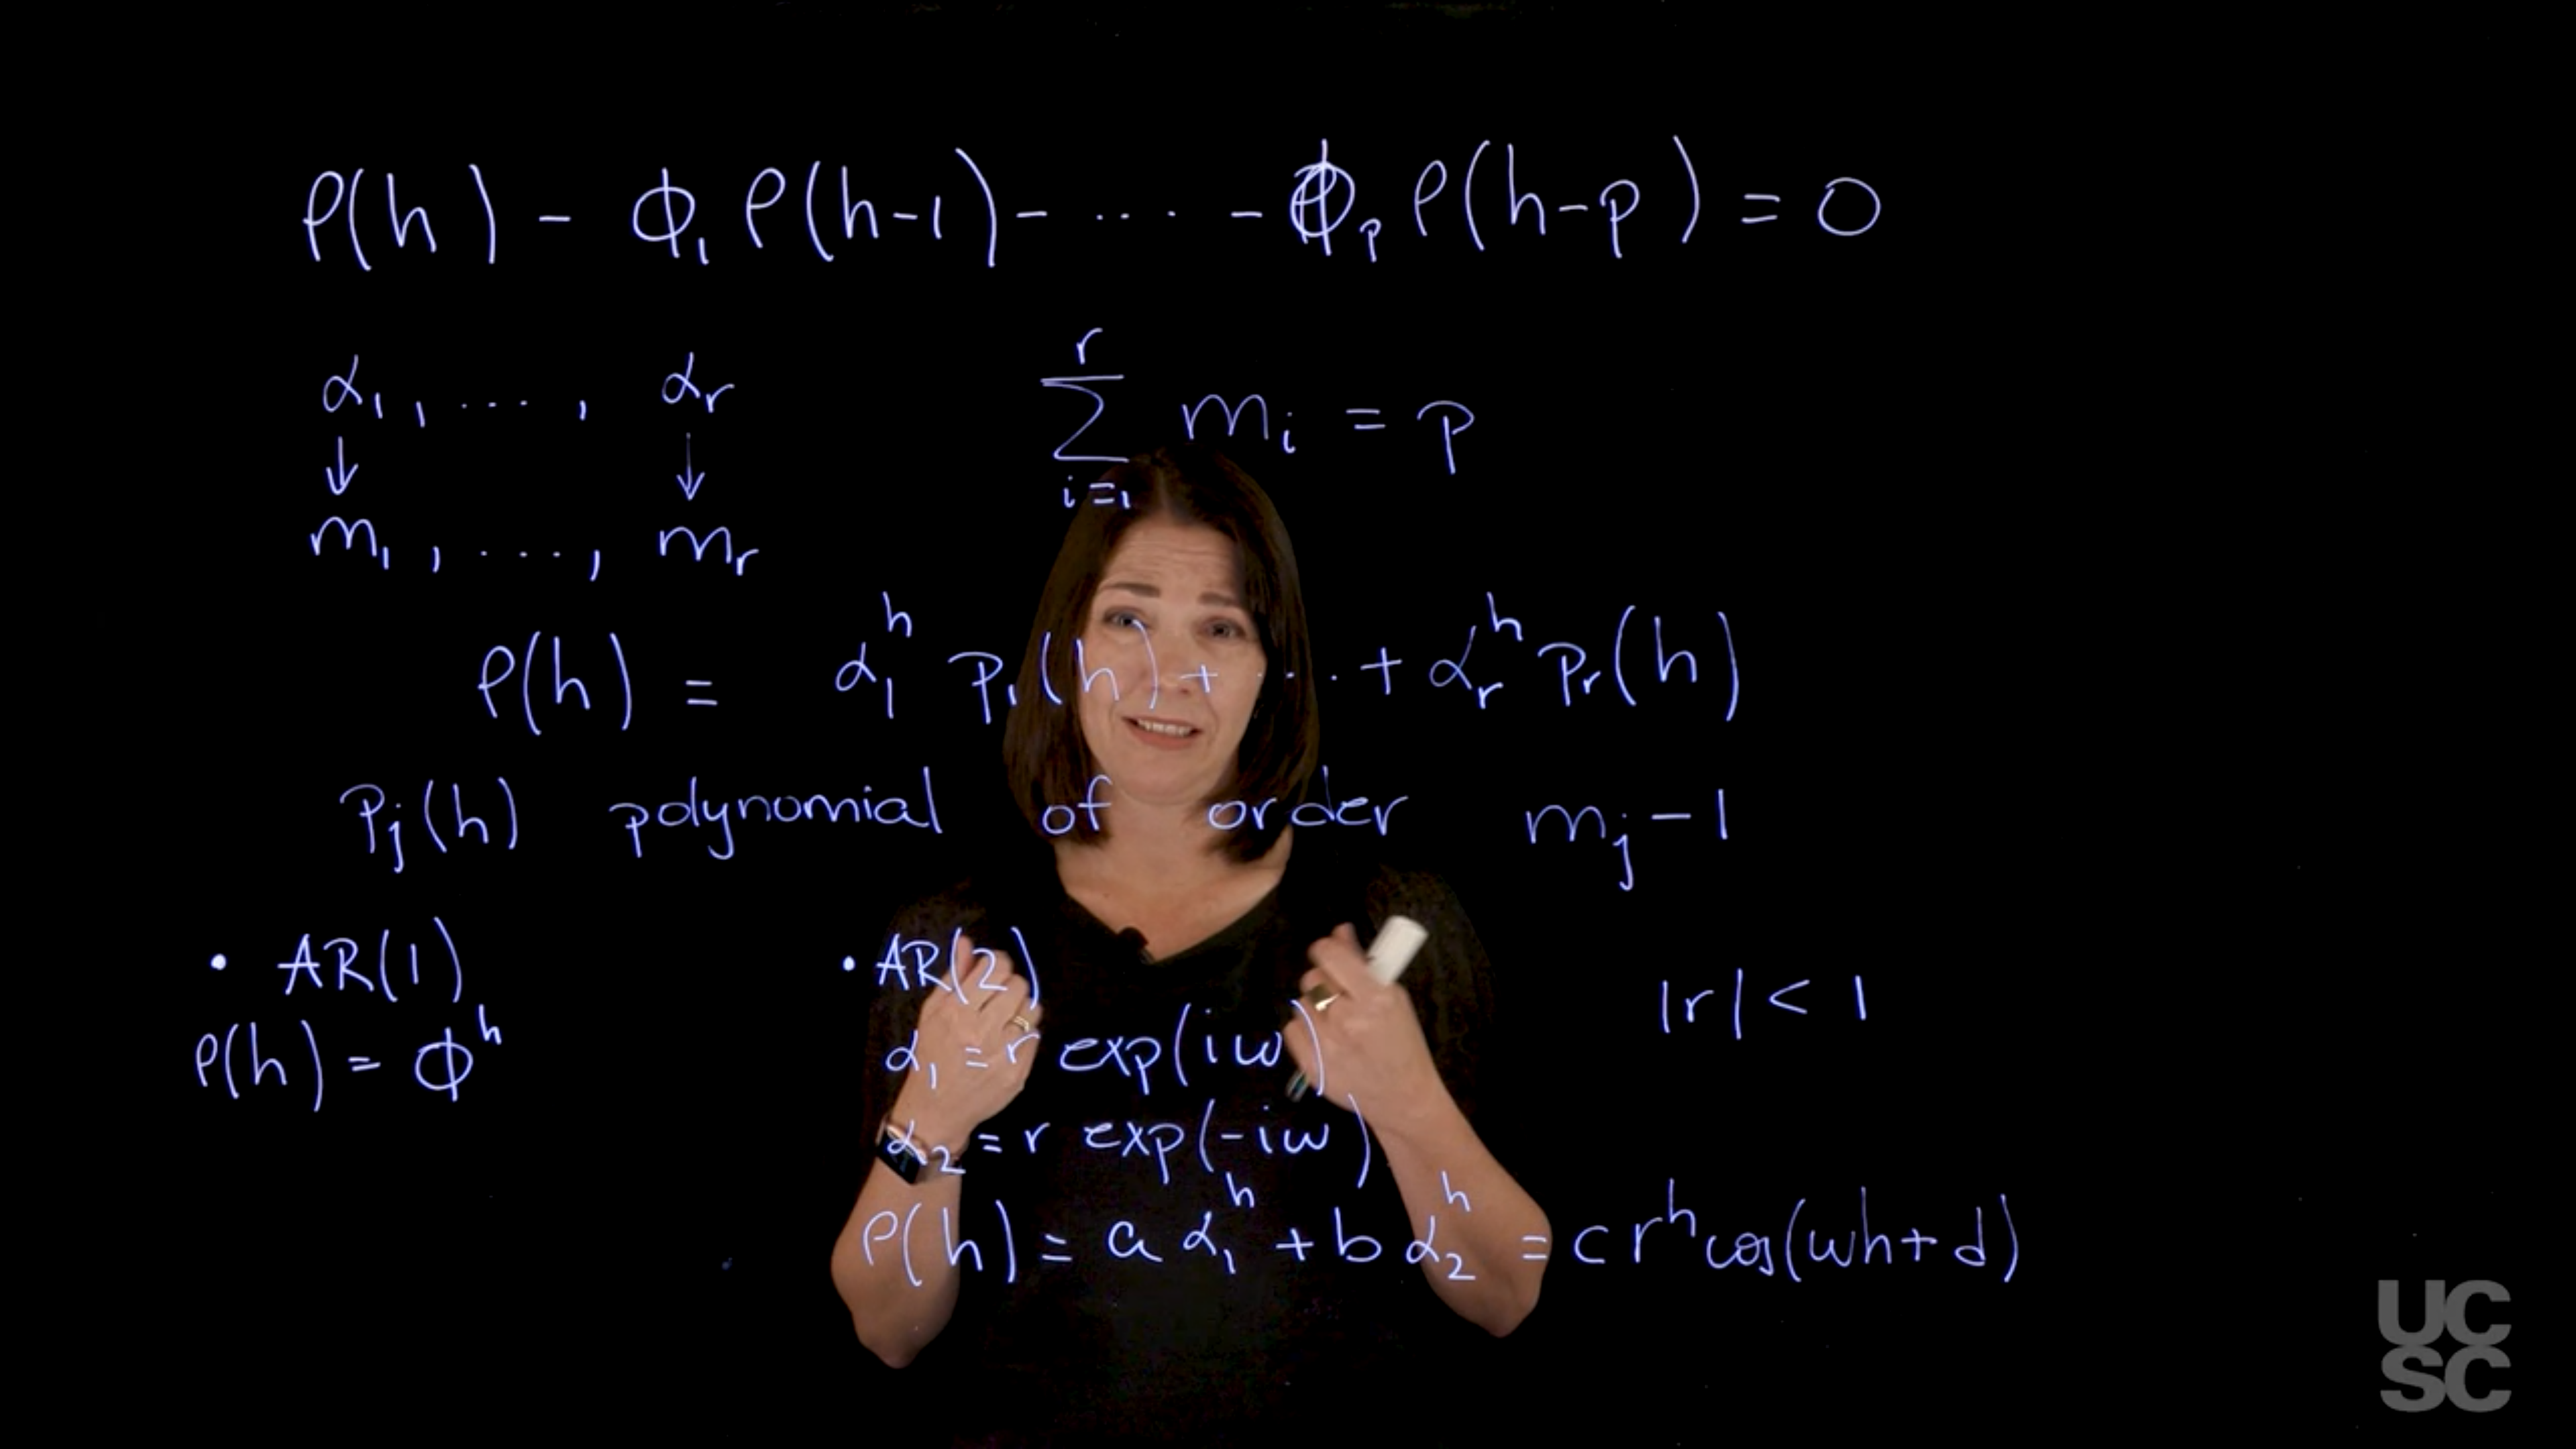 ρ(h) - ϕ₁ ρ(h-1) - .... - ϕₚ ρ(h-p) = 0
α₁, ..., αᵣ
r
∑ mᵢ = p
i=1
↓ ↓
m₁, ..., mᵣ
ρ(h) = α₁ʰ p₁(h) + ... + αᵣʰ pᵣ(h)
pⱼ(h) polynomial of order mⱼ - 1
• AR(1)
ρ(h) = ϕʰ
• AR(2)
|r| < 1
α₁ = r exp(iω)
α₂ = r exp(-iω)
ρ(h) = a α₁ʰ + b α₂ʰ = c rʰ cos(ωh + d)
UC
SC